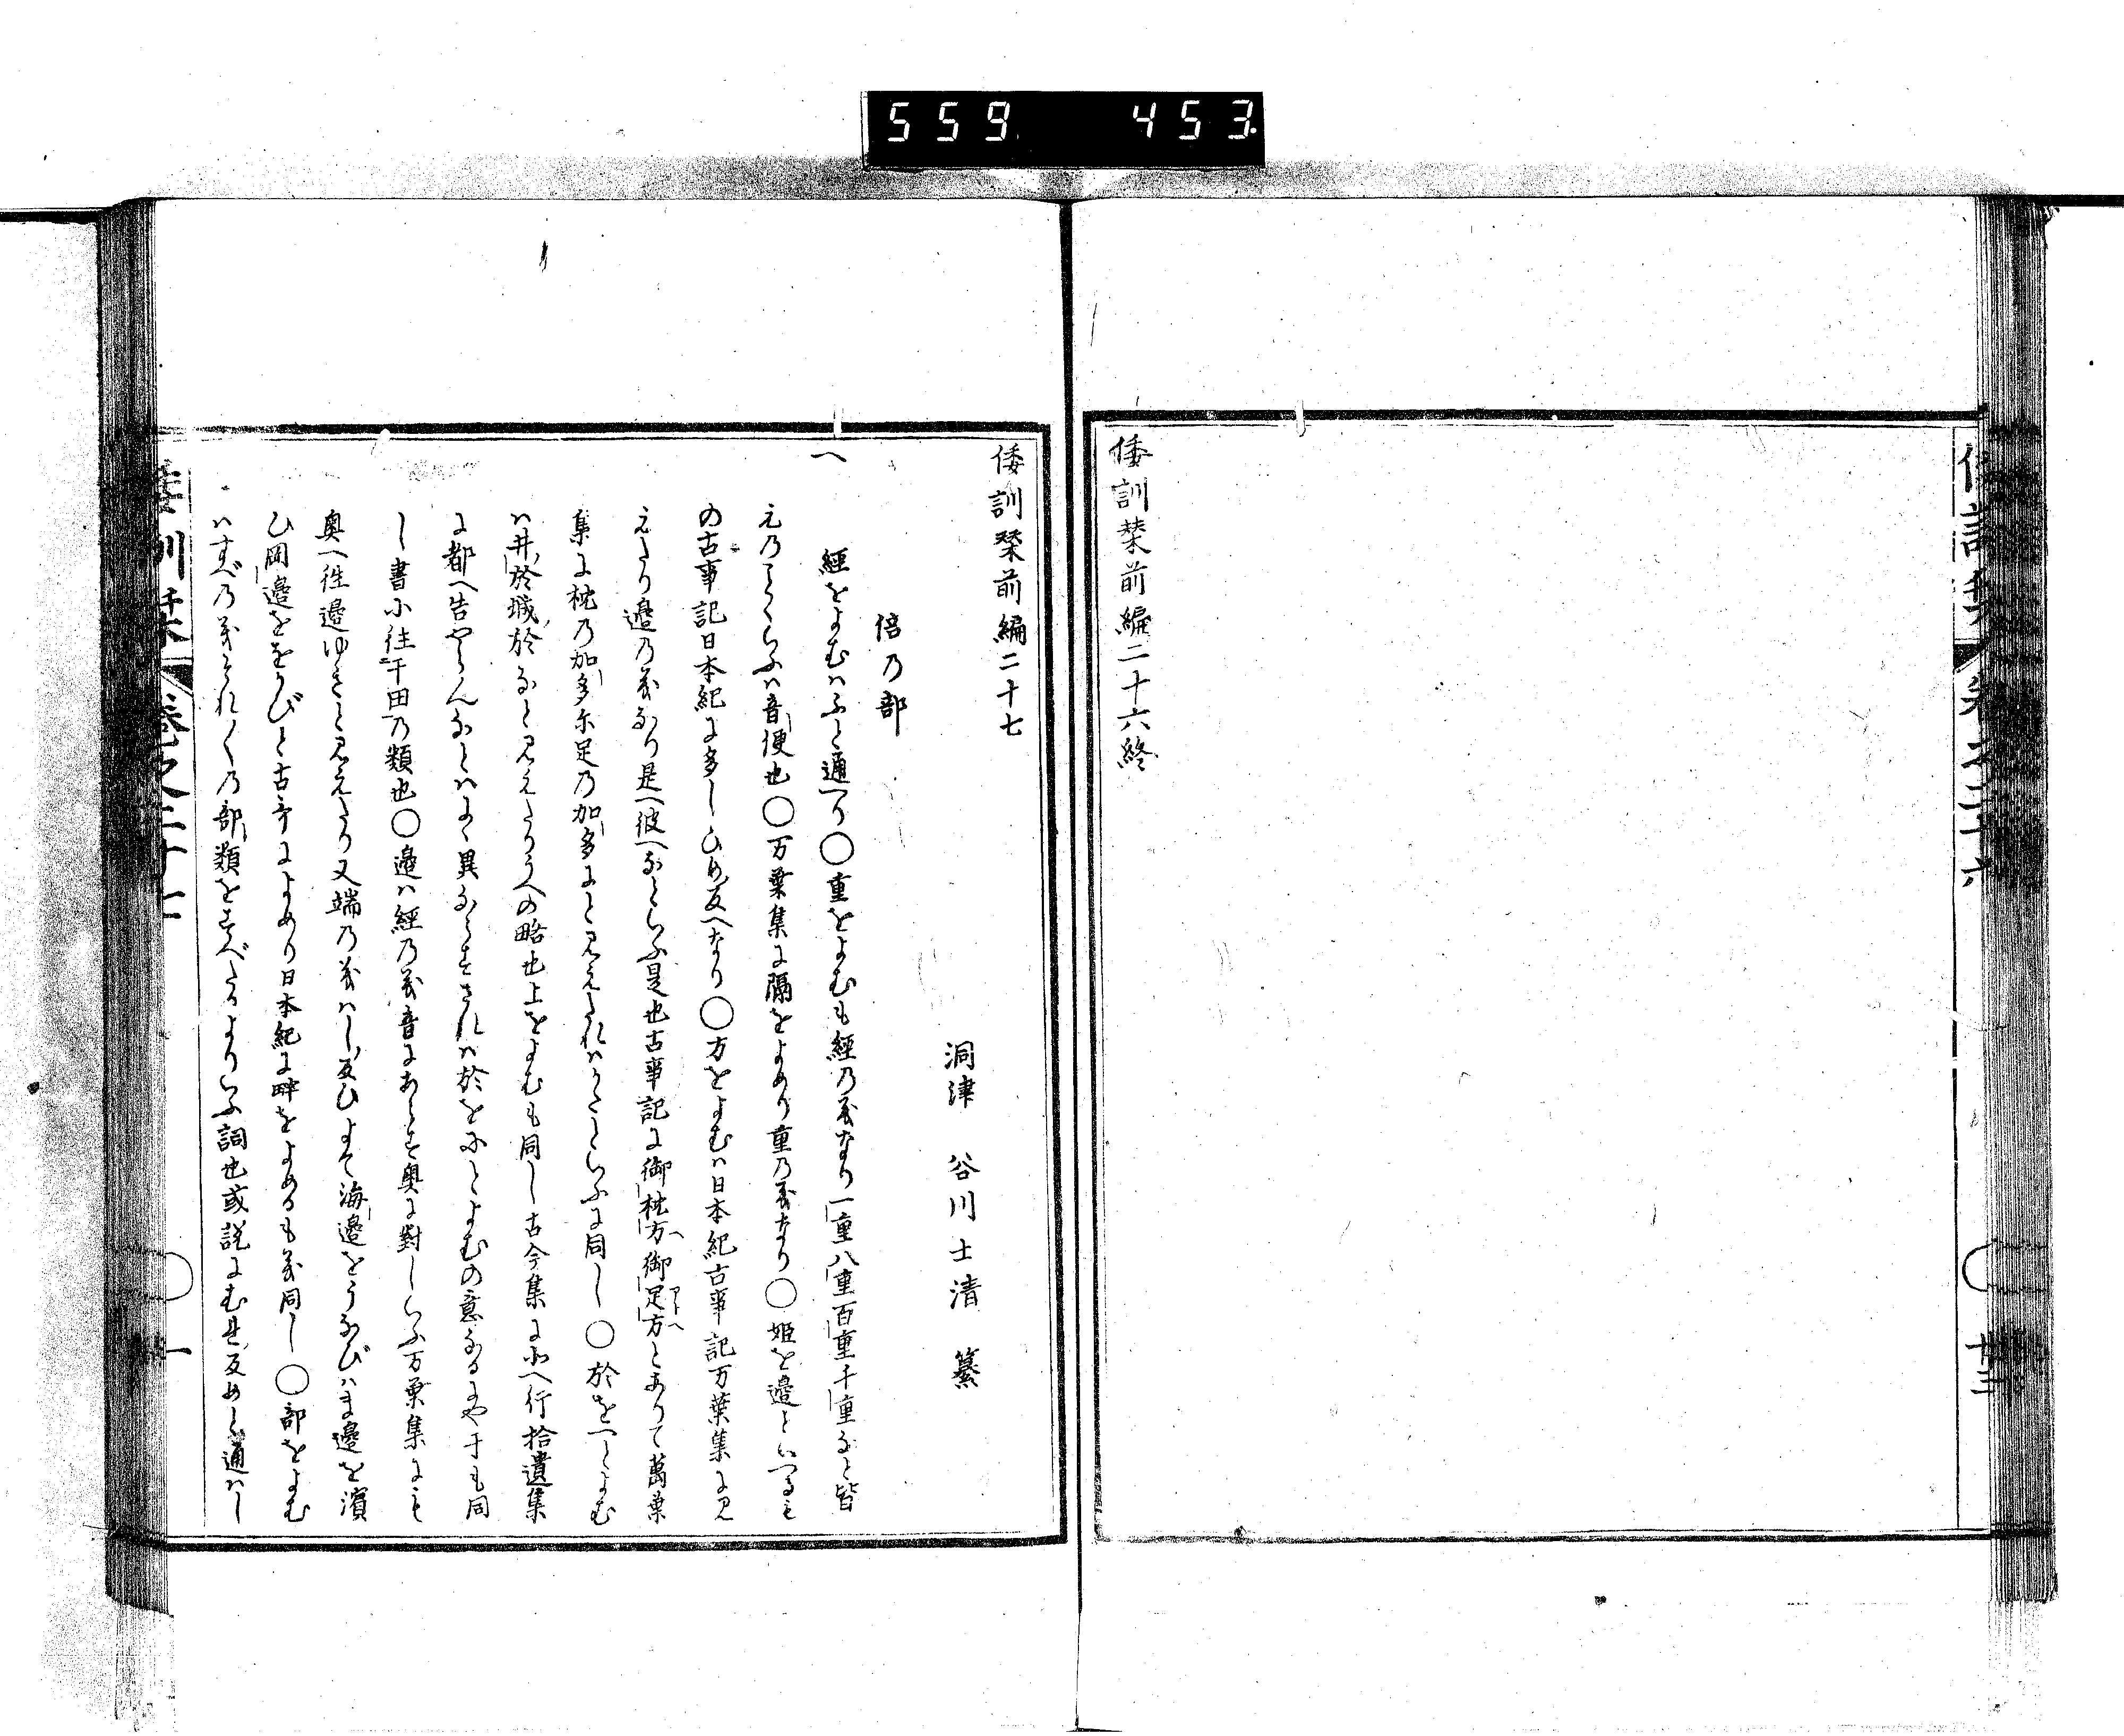 559 453
倭訓栞前編二十六終
倭訓栞前編二十七
洞津 谷川士清 纂
倍乃部
へ
經をよむハふと通へり〇重をよむも經乃義なり一重八重百重千重なと皆
え乃ことくらふハ音便也〇万葉集に隔をよめり重乃義なり〇姫を邊といへるも
の古事記日本紀に多しひめ反へなり〇方をよむハ日本紀古事記万葉集に見
えたり邊乃義なり是へ彼へなといふ是也古事記に御枕方御足方とありて萬葉
集に枕乃加多尓足乃加多にと見えたれハかたといふに同し〇於をへとよむ
ハ井於城於なと見えたりうへの略也上をよむも同し古今集に北へ行拾遺集
に都へ告やらんなとハよく異ならすされハ於をにとよむの意なるにや于も同
し書小往于田乃類也〇邊ハ經乃義音にあらす奥に對しいふ万葉集にも
奥へ徃邊ゆきと見えたり又端乃義ハし反ひよて海邊をうなびハま邊を濱
ひ岡邊ををかびと古哥によめり日本紀に畔をよめるも義同し〇部をよむ
ハすべ乃義それ〱乃部類をすべたるよりいふ詞也或説にむれ反めと通ハし
倭訓栞 巻之二十七 一
巻之二十六 廿三